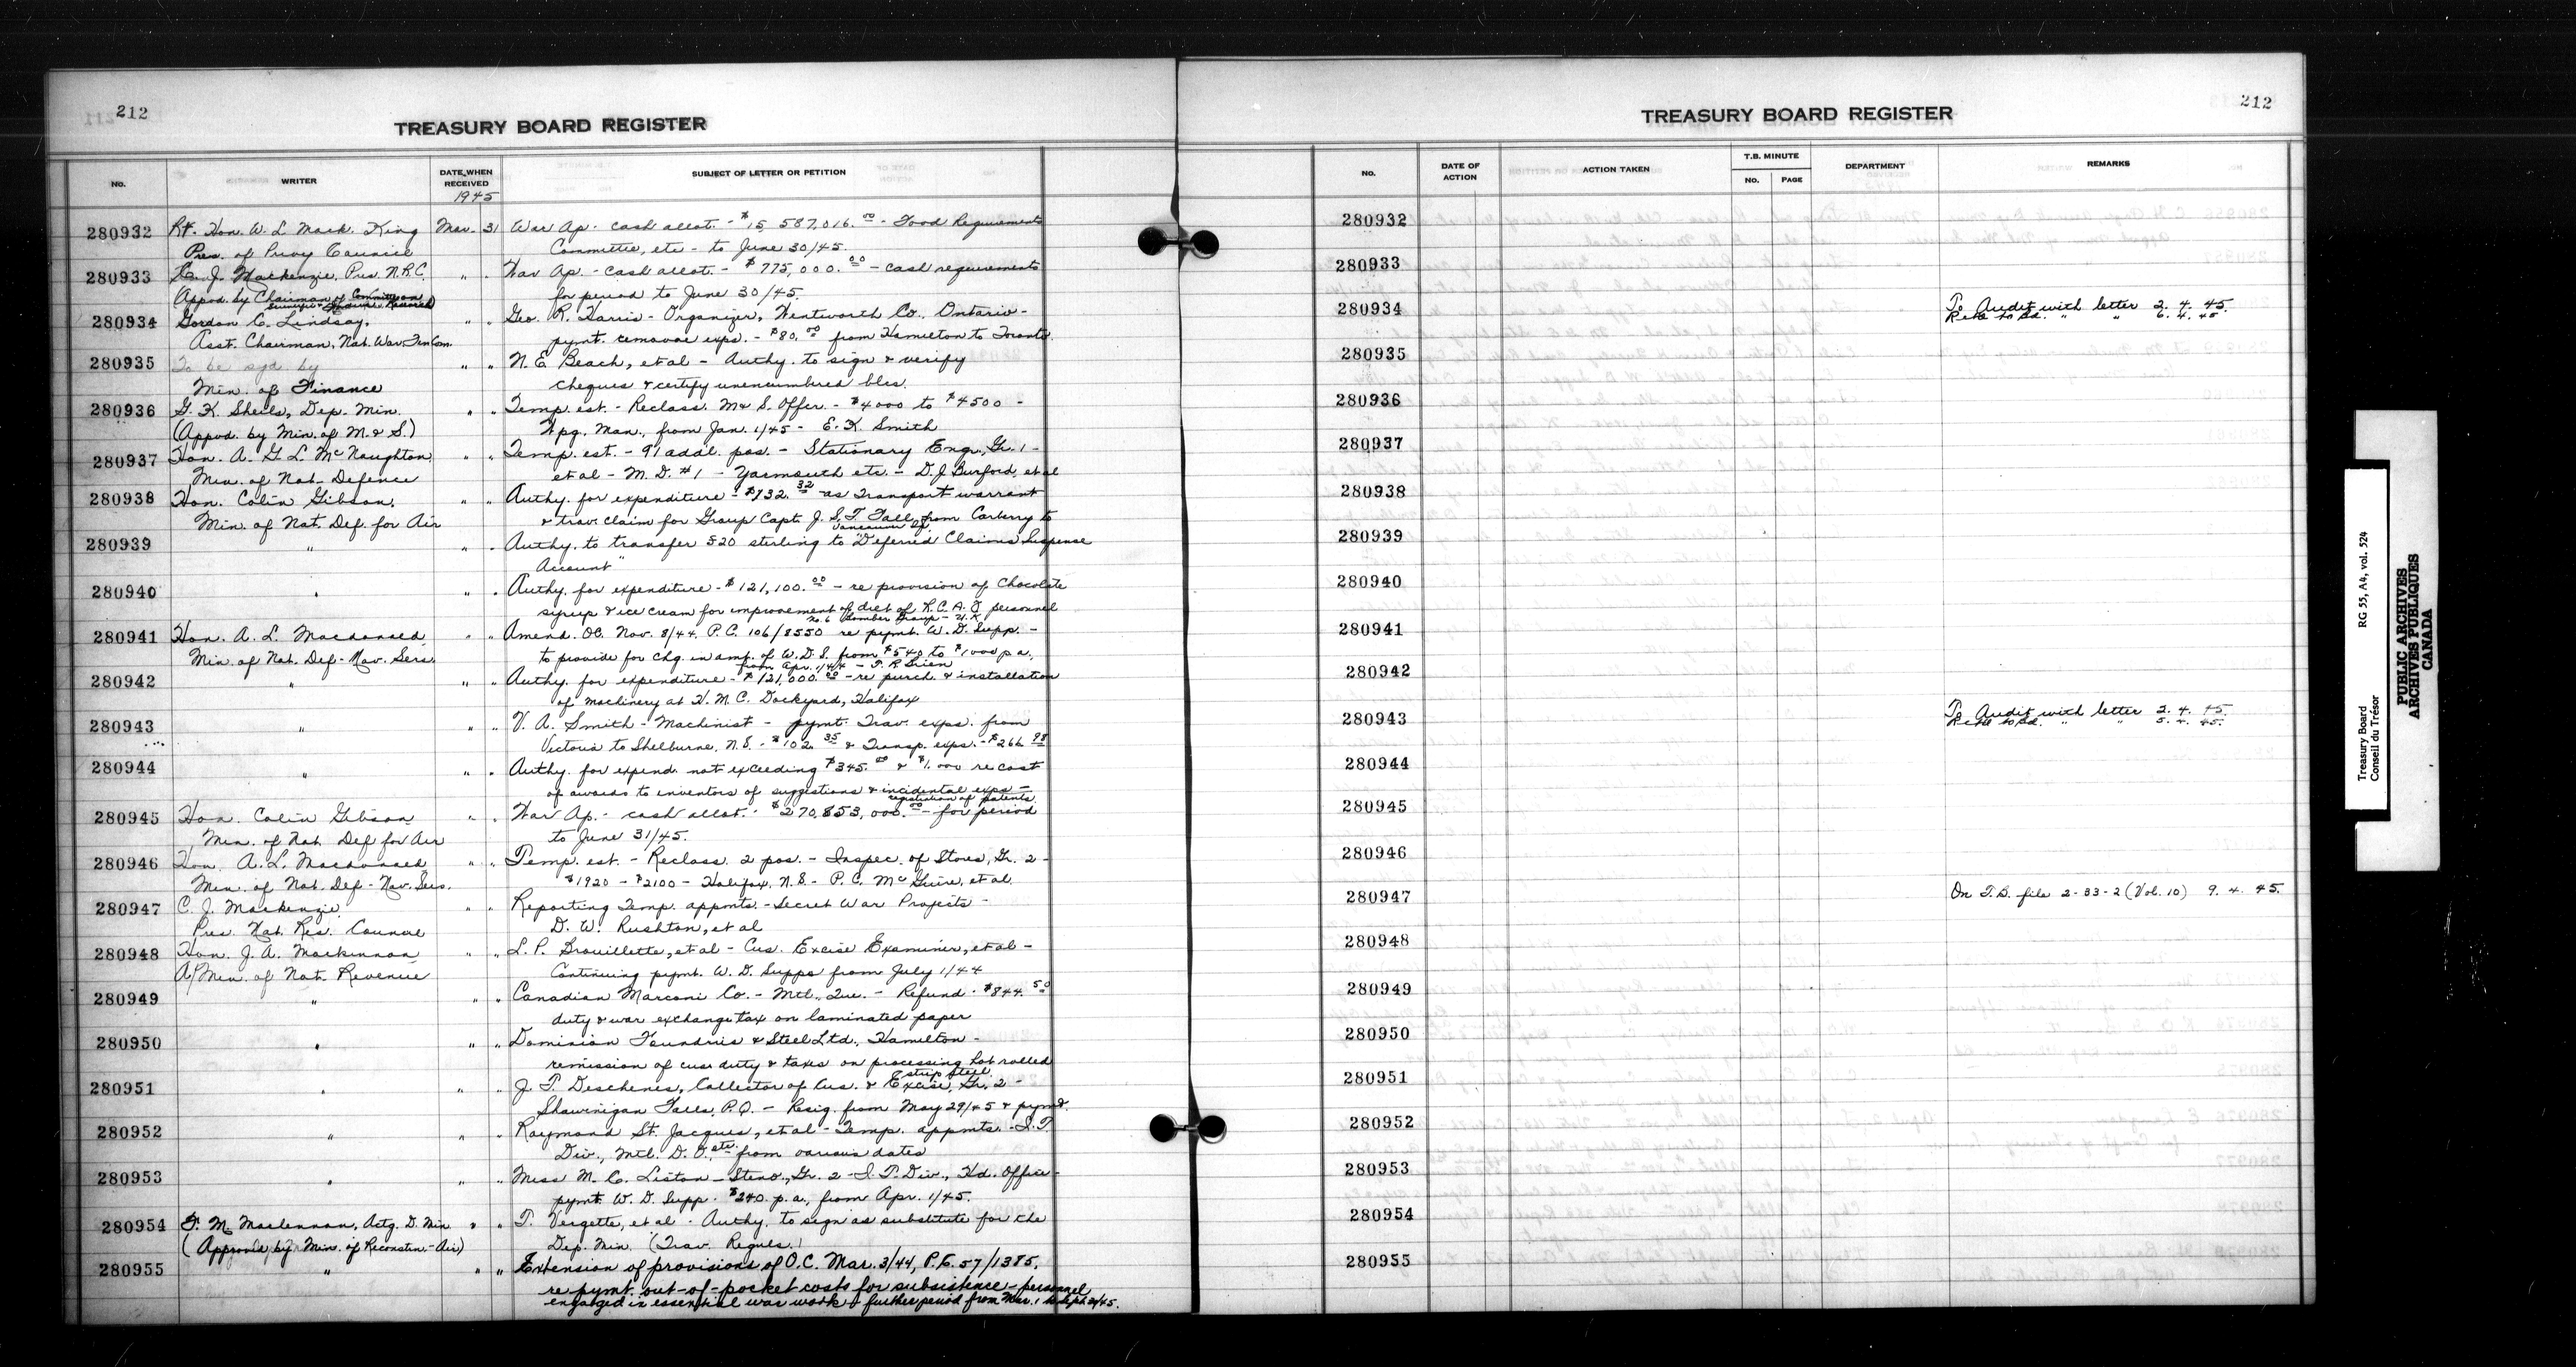 212
TREASURY BOARD REGISTER
No.
WRITER
DATE WHEN RECEIVED
1945
SUBJECT OF LETTER OR PETITION
280932 Rt. Hon. W. L. Mack. King Mar. 31 War Ap. cash allot. - $15,587,016.00 - Food Requirements
Pres. of Privy Council Committee, etc - to June 30/45.
280933 C. J. Mackenzie, Pres. N.R.C. " " War Ap. - cash allot. - $775,000.00 - cash requirements
Appvd. by Chairman of Committee on for period to June 30/45.
Scientific & Industrial Research)
280934 Gordon C. Lindsay, " " Geo. R. Harris - Organizer, Wentworth Co. Ontario -
Asst. Chairman, Nat. War Fin Com. pymt. removal exps. - $80.00 from Hamilton to Toronto.
280935 To be sgd by " " N. E. Beach, et al - Authy. to sign & verify
Min. of Finance cheques & certify unencumbered bles.
280936 G. K. Sheils, Dep. Min. " " Temp. est. - Reclass. M & S. Offcr. - $4000 to $4500 -
(Appvd. by Min. of M. & S.) Wpg. Man., from Jan. 1/45 - E. K. Smith
280937 Hon. A. G. L. McNaughton, " " Temp. est. - 91 addl. pos. - Stationary Engr., Gr. 1 -
Min. of Nat. Defence et al - M. D. #1 - Yarmouth etc. - D. J. Burford, et al
280938 Hon. Colin Gibson, " " Authy. for expenditure - $932.32 as Transport warrant
Min. of Nat. Def. for Air & trav. claim for Group Capt. J. S. T. Fall, from Carberry to
Vancouver Is.
280939 " " " Authy. to transfer 520 sterling to "Deferred Claims Suspense
Account"
280940 " " " Authy. for expenditure - $121,100.00 - re provision of Chocolate
syrup & ice cream for improvement of diet of R.C.A.F. personnel
No. 6 Bomber Group - U.K.
280941 Hon. A. L. Macdonald " " Amend. OC. Nov. 8/44, P.C. 106/8550 re pymt. W. D. Supp. -
Min. of Nat. Def - Nav. Sers. to provide for chg. in amt. of W. D. S. from $540 to $1000 p a,
from Apr. 1/44 -
280942 " " " Authy. for expenditure - $121,000.00 - re purch. & installation
of machinery at H. M. C. Dockyard, Halifax
280943 " " " V. A. Smith - Machinist - pymt. Trav. exps. from
Victoria to Shelburne, N.S. - $102.35 & Transp. exps. - $266.98
280944 " " " Authy. for expend. not exceeding $345.00 & $1,000 re cost
of awards to inventors of suggestions & incidental exps -
registration of patents.
280945 Hon. Colin Gibson " " War Ap. - cash allot. - $270,853,000.00 - for period
Min. of Nat. Def for Air to June 31/45.
280946 Hon. A. L. Macdonald " " Temp. est. - Reclass. 2 pos. - Inspec. of Stores, Gr. 2 -
Min. of Nat. Def - Nav. Sers. $1920 - $2100 - Halifax, N.S. - P. C. McGuire, et al.
280947 C. J. Mackenzie, " " Reporting Temp. appmts. - Secret War Projects -
Pres. Nat. Res. Council D. W. Rushton, et al
280948 Hon. J. A. Mackinnon " " L. P. Brouillette, et al - Cus. Excise Examiner, et al -
A/Min. of Nat. Revenue Continuing pymt. W. D. Supps from July 1/44
280949 " " " Canadian Marconi Co. - Mtl., Que. - Refund - $844.50
duty & war exchange tax on laminated paper
280950 " " " Dominion Foundries & Steel Ltd., Hamilton -
remission of cus. duty & taxes on processing hot rolled
strip steel.
280951 " " " J. T. Deschenes, Collector of Cus. & Excise, Gr. 2 -
Shawinigan Falls, P.Q. - Resig. from May 29/45 & pymt.
280952 " " " Raymond St. Jacques, et al - Temp. appmts. - I. T.
Div., Mtl. D. O. etc. from various dates
280953 " " " Miss M. C. Liston - Steno., Gr. 2 - I. T. Div., Hd. Office -
pymt. W. D. Supp. - $240. p. a., from Apr. 1/45.
280954 F. M. Maclennan, Actg. D. Min " " T. Vergette, et al - Authy. to sign as substitute for the
(Approved by Min. of Reconstrn. - Air) Dep. Min. (Trav. Reguls.)
280955 " " " Extension of provisions of O.C. Mar. 3/44, P.C. 57/1385,
re pymt. out-of-pocket costs for subsistence - personnel
engaged in essential war work - further period from Mar. 1 to Sept. 30/45.
TREASURY BOARD REGISTER
212
No.
DATE OF ACTION
ACTION TAKEN
T.B. MINUTE
No. PAGE
DEPARTMENT
REMARKS
280932
280933
280934 To Audit with letter 2. 4. 45.
Retd to Bd. " " 6. 4. 45
280935
280936
280937
280938
280939
280940
280941
280942
280943 To Audit with letter 2. 4. 45.
Retd to Bd. " " 5. 4. 45.
280944
280945
280946
280947 On T.B. file 2-33-2 (Vol. 10) 9. 4. 45.
280948
280949
280950
280951
280952
280953
280954
280955
Treasury Board
Conseil du Trésor
RG 55, A4, vol. 524
PUBLIC ARCHIVES
ARCHIVES PUBLIQUES
CANADA